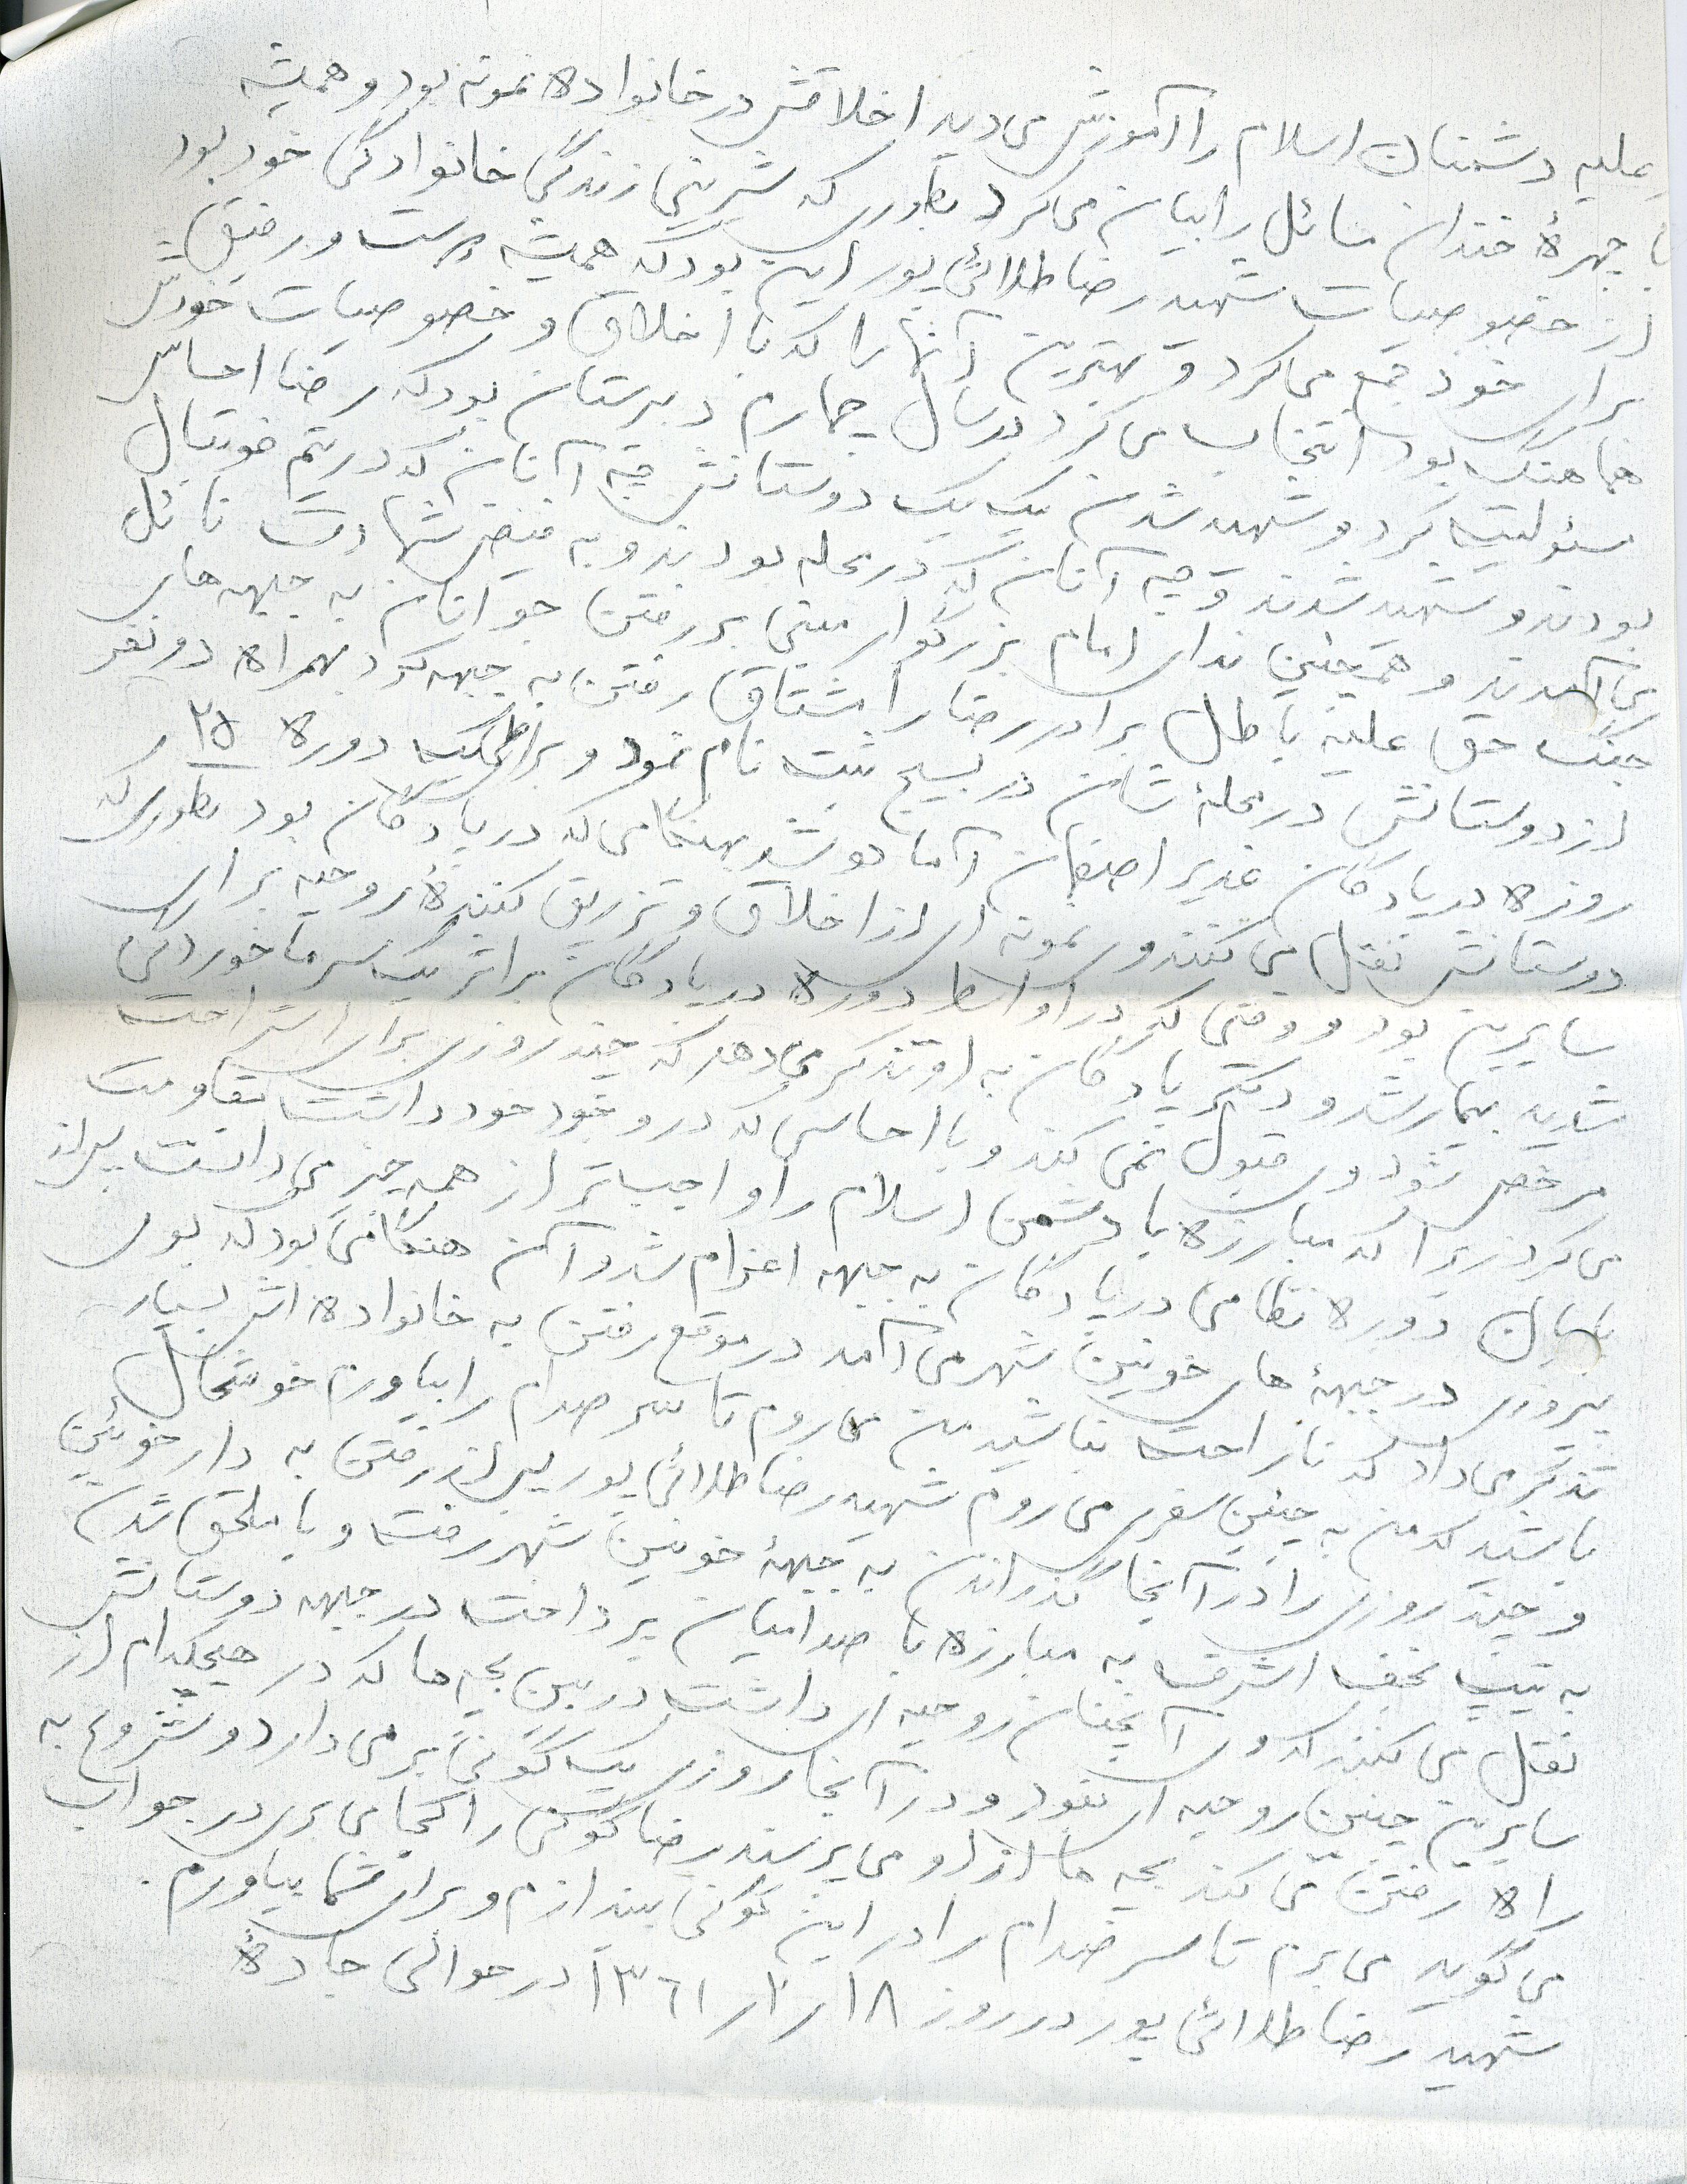 علیه دشمنان اسلام را آموزش می دید اخلاقش در خانواده نمونه بود و همیشه
با چهرهٔ خندان مسائل را بیان می کرد بطوری که شیرینی زندگی خانوادگی خود بود
از خصوصیات شهید رضا طلائی پور این بود که همیشه دوست و رفیق
برای خود جمع می کرد و بهترین آنها را که با اخلاق و خصوصیات خودش
هماهنگ بود انتخاب می کرد در سال چهارم دبیرستان بود که رضا احساس
مسئولیت کرد و شهید شدن یک یک دوستانش چه آنان که در تیم فوتبال
بودند و شهید شدند و چه آنان که در محله بودند و به فیض شهادت نائل
می آمدند و همچنین ندای امام بزرگوار مبنی بر رفتن جوانان به جبهه های
جنگ حق علیه باطل برادر رضا را مشتاق رفتن به جبهه کرد بهمراه دو نفر
از دوستانش در محلهٔ شان در بسیج ثبت نام نمود و برای یک دوره ۲۵
روزه در پادگان غدیر اصفهان آماده شد هنگامی که در پادگان بود بطوری که
دوستانش نقل می کنند وی نمونه ای از اخلاق و تزریق کنندهٔ روحیه برای
سایرین بود و وقتی که در اواسط دوره در پادگان بر اثر یک سرماخوردگی
شدید بیمار شد و دکتر پادگان به او تذکر می دهد که چند روزی برای استراحت
مرخص شود وی قبول نمی کند و با احساسی که در وجود خود داشت مقاومت
می کرد زیرا که مبارزه با دشمن اسلام را واجب تر از همه چیز می دانست پس از
پایان دوره نظامی در پادگان به جبهه اعزام شد و آن هنگامی بود که بوی
پیروزی در جبههٔ های خونین شهر می آمد در موقع رفتن به خانواده اش بسیار
تذکر می داد که ناراحت نباشید من می روم تا سر صدام را بیاورم خوشحال
باشید که من به چنین سفری می روم شهید رضا طلائی پور پس از رفتن به دارخوئین
و چند روزی را در آنجا گذراندن به جبههٔ خونین شهر رفت و با ملحق شدن
به تیپ نجف اشرف به مبارزه با صدامیان پرداخت در جبهه دوستانش
نقل می کنند که وی آنچنان روحیه ای داشت در بین بچه ها که در هیچکدام از
سایرین چنین روحیه ای نبود و در آنجا روزی یک گونی بر می دارد و شروع به
راه رفتن می کند بچه ها از او می پرسند رضا گونی را کجا می بری در جواب
می گوید می برم تا سر صدام را در این گونی بیندازم و برای شما بیاورم .
شهید رضا طلائی پور در روز ۱۸ ر ۲ ر ۱۳۶۱ در حوالی جادهٔ